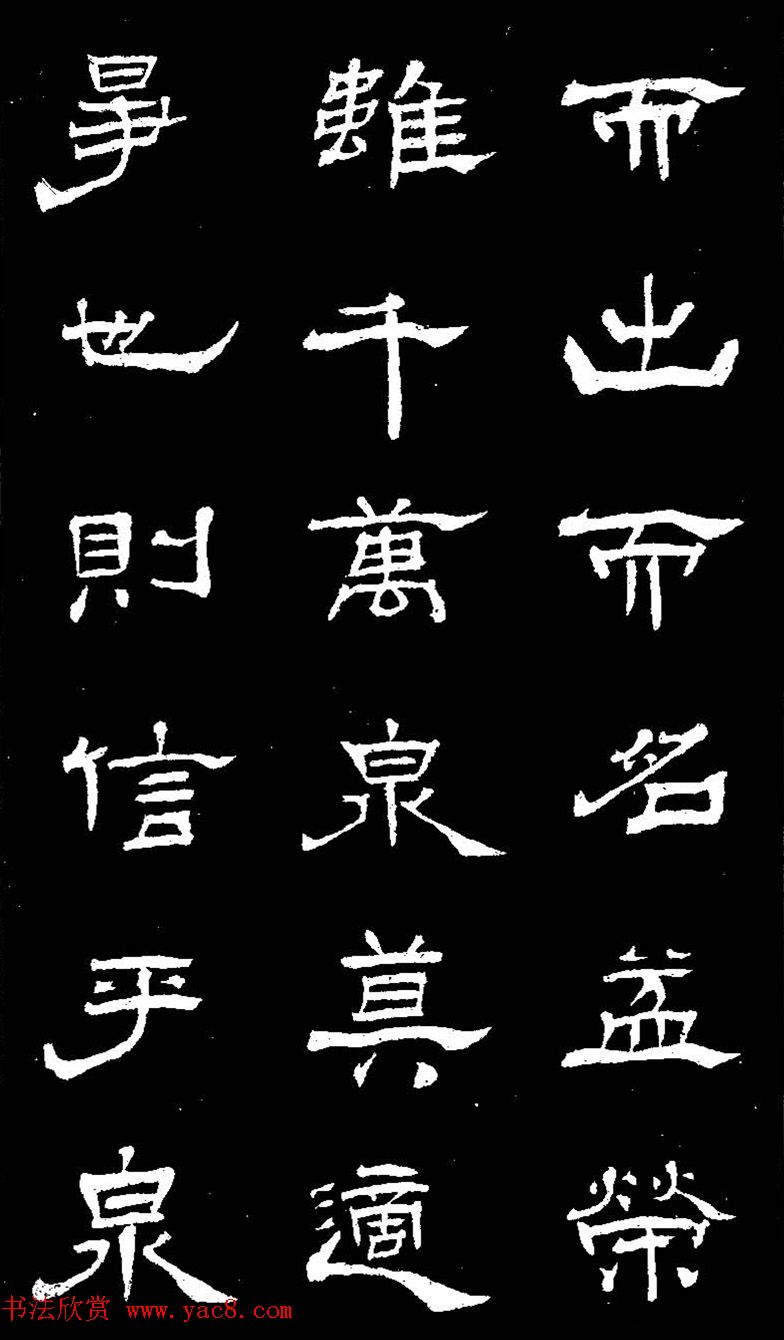 而出而名益榮
雖千萬泉莫適
爭也則信乎泉
书法欣赏 www.yac8.com